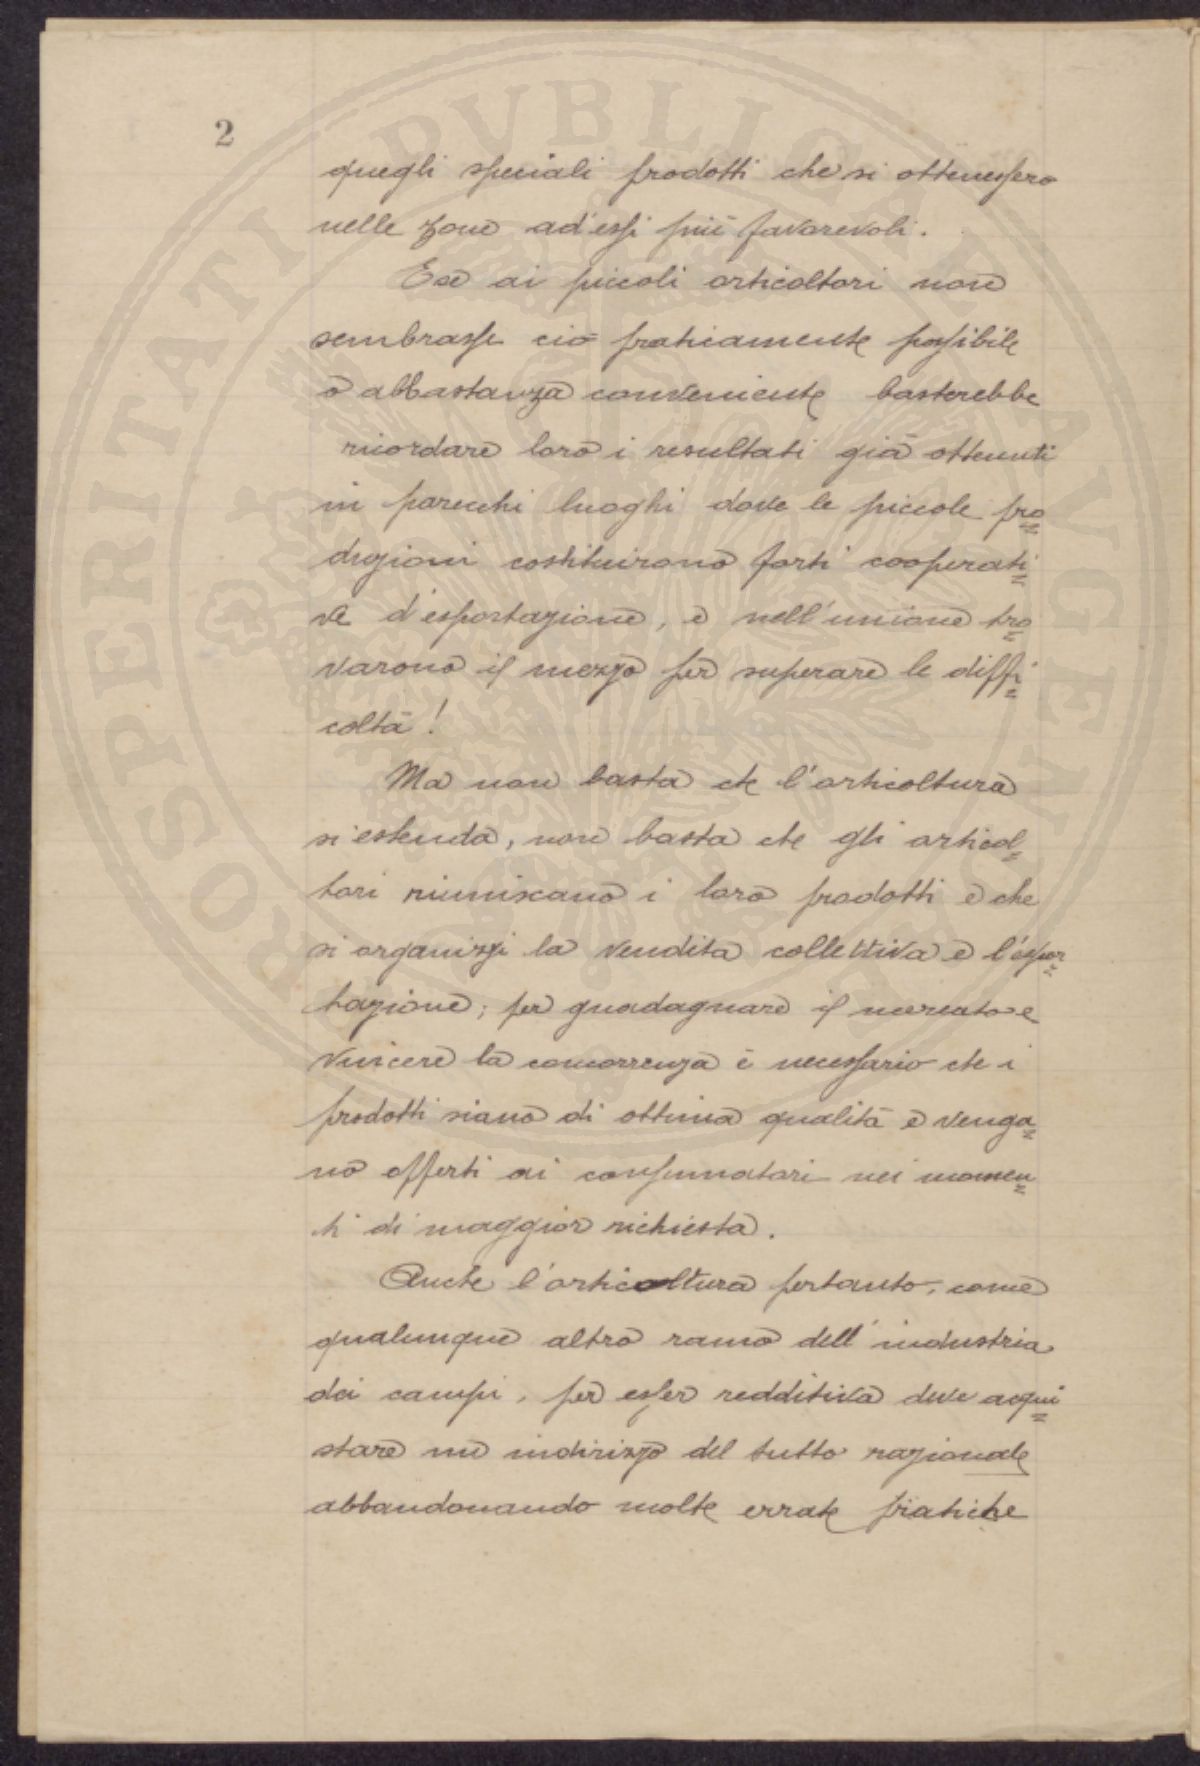 2
quegli speciali prodotti che si ottenessero
nelle zone ad essi più favorevoli.
E se ai piccoli orticoltori non
sembrasse ciò praticamente possibile
o abbastanza conveniente basterebbe
ricordare loro i resultati già ottenuti
in parecchi luoghi dove le piccole pro=
duzioni costituirono forti cooperati=
ve d'esportazione, e nell'unione tro=
varono il mezzo per superare le diffi=
coltà!
Ma non basta che l'orticoltura
si estenda, non basta che gli orticol=
tori riuniscano i loro prodotti e che
si organizzi la vendita collettiva e l'espor=
tazione; per guadagnare il mercato e
vincere la concorrenza è necessario che i
prodotti siano di ottima qualità e venga=
no offerti ai consumatori nei momen=
ti di maggior richiesta.
Anche l'orticoltura pertanto, come
qualunque altro ramo dell'industria
dei campi, per esser redditiva deve acqui=
stare un indirizzo del tutto razionale
abbandonando molte errate pratiche
PROSPERITATI PVBLICAE AVGENDAE